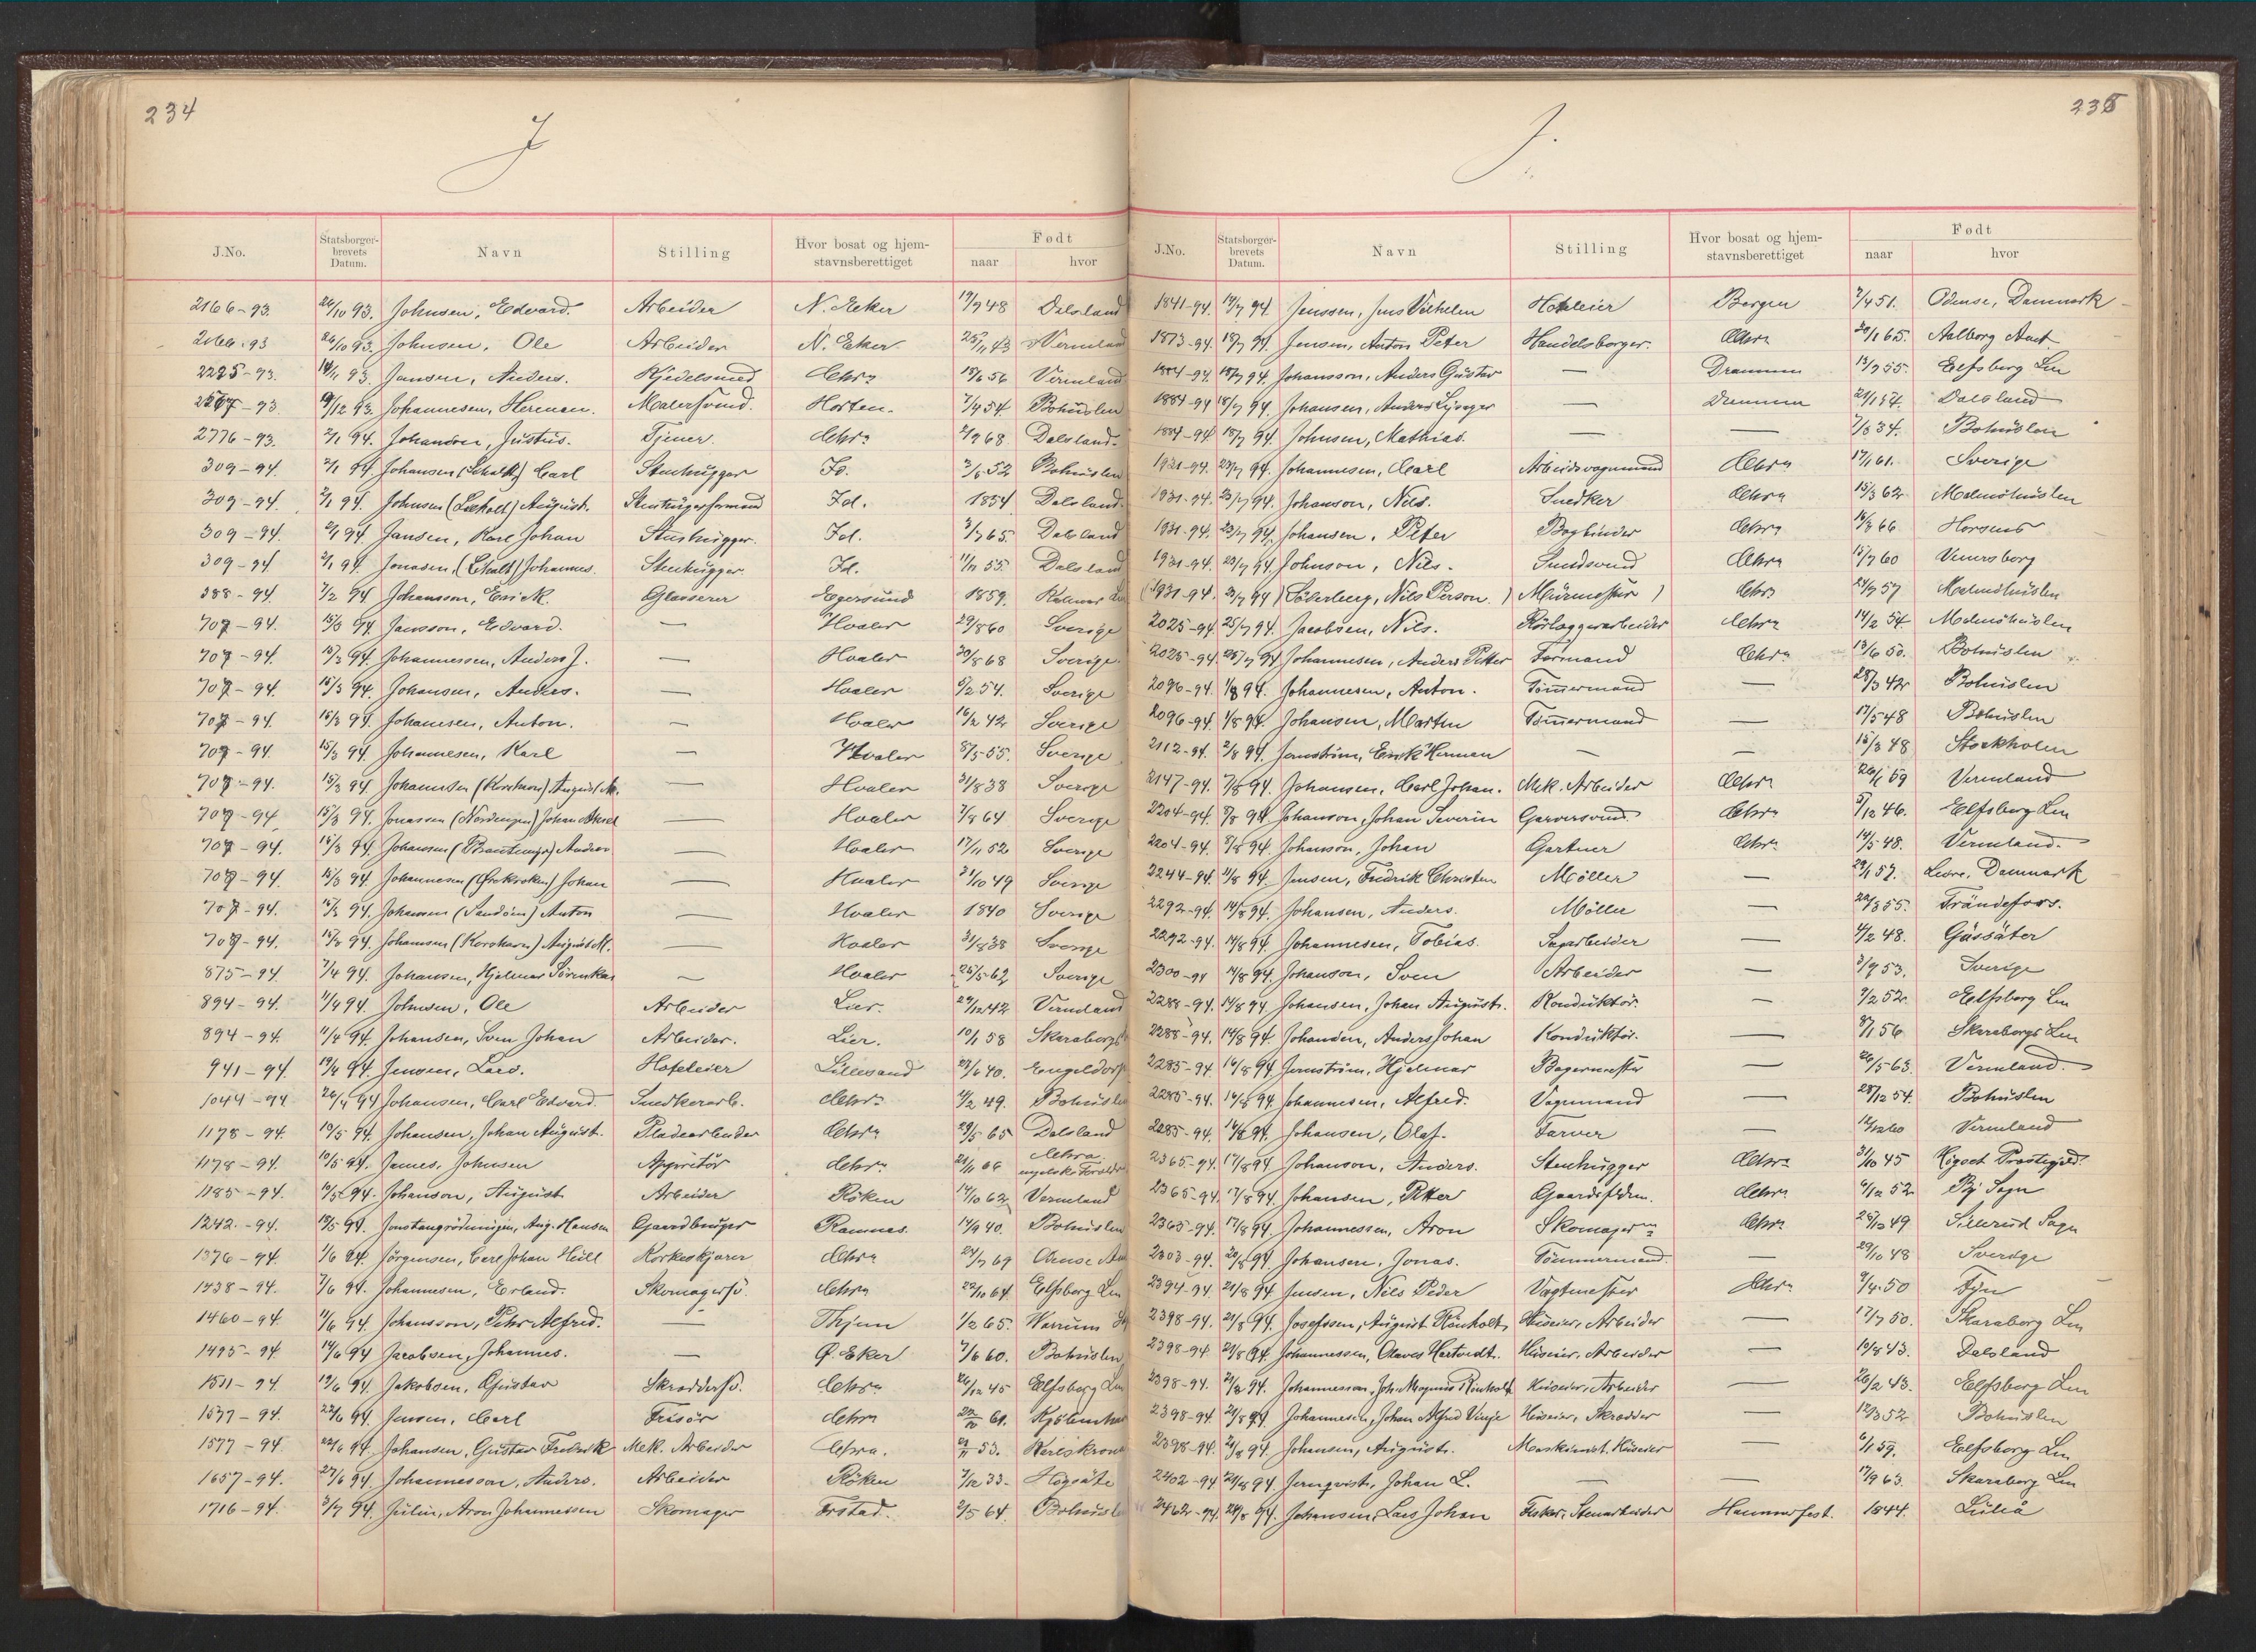 234
J
J.No.
Statsborger-
brevets
Datum.
Navn
Stilling
Hvor bosat og hjem-
stavnsberettiget
Født
naar
hvor
2166-93. 26/10 93. Johnsen, Edvard. Arbeider N. Eker 19/9 48 Dalsland
2166-93 26/10 93. Johnsen, Ole Arbeider N. Eker 25/11 43 Vermland
2225-93. 14/11 93. Jansen, Anders. Kjedelsmed Chra 18/6 56 Vermland
9/12 93. Johannesen, Herman. Malersvend. Horten. 7/4 54 Bohuslen
2776-93. 2/1 94. Johanson, Justus. Tjener. Chra 2/9 68 Dalsland.
309-94. 2/1 94. Johansen Carl Stenhugger Id. 3/6 52 Bohuslen
309-94. 2/1 94. Johnsen August. Stenhuggerformand Id. 1854 Dalsland
309-94 2/1 94. Jansen, Karl Johan Stenhugger. Id. 3/7 65 Dalsland
309-94 2/1 94. Jonasen, Johannes. Stenhugger Id. 11/11 55. Dalsland
388-94. 7/2 94 Johansson, Erick. Glasserer Egersund 1859. Kalmar
707-94. 15/3 94. Jansson, Edvard. — Hvaler 29/8 60 Sverige
707-94. 15/3 94. Johannessen, Anders J. — Hvaler 30/8 68 Sverige
707-94. 15/3 94. Johansen, Anders. — Hvaler 5/2 54. Sverige
707-94. 15/3 94. Johansen, Anton. — Hvaler 16/2 42 Sverige
707-94. 15/3 94. Johannesen, Karl — Hvaler 8/5 55. Sverige
707-94. 15/3 94. Johannesen (Korshavn) August M. — Hvaler 31/8 38 Sverige
707-94 15/3 94. Jonassen (Nordengen) Johan Aksel — Hvaler 7/8 64 Sverige
707-94. 15/3 94. Johansen Andreas — Hvaler 17/11 52 Sverige
707-94. 15/3 94. Johannesen Johan — Hvaler 31/10 49 Sverige
707-94. 15/3 94. Johansen (Sandöen) Anton — Hvaler 1840 Sverige
707-94. 15/3 94. Johansen (Korshavn) August M. — Hvaler 31/8 38 Sverige
875-94 7/4 94. Johansen, Hjelmar — Hvaler 25/5 62 Sverige
894-94. 11/4 94. Johnsen, Ole Arbeider Lier. 29/12 42 Vermland
894-94. 11/4 94. Johansen, Sven Johan Arbeider. Lier. 10/1 58 Skaraborgs
941-94. 19/4 94. Jensen, Lars. Hoteleier Lillesand 28/6 40.
1044-94 26/4 94 Johansen, Carl Edvard. Snedkerarb. Chra 4/2 49. Bohuslen
1178-94. 10/5 94. Johansen, Johan August. Pladearbeider Chra 29/5 65 Dalsland
1178-94. 10/5 94. James, Johnsen Appretör Chra 21/11 66 Chra. engelske Forældre
1185-94. 10/5 94. Johanson, August Arbeider Röken 14/10 62 Vermland
1242-94. 18/5 94. Aug. Hansen Gaardbruger Ramnes. 14/9 40. Bohuslen
1376-94. 1/6 94. Jörgensen, Carl Johan Korkeskjærer Chra 24/7 69
1438-94. 7/6 94. Johannesen, Erland. Skomagersv. Chra 22/10 64 Elfsborg Len
1460-94. 11/6 94. Johansson, Pehr Alfred. — 1/2 65.
1495-94 14/6 94 Jacobsen, Johannes. — Ø. Eker 7/6 60. Bohuslen
1531-94. 19/6 94. Jakobsen, Gustav Skræddersv. Chra 26/12 45 Elfsborg Len
1577-94. 22/6 94. Jensen, Carl Frisör Chra Kjøbenhavn
1577-94. 22/6 94. Johansen, Gustav Fredrik Mek. Arbeider Chra. Karlskrona
1657-94. 27/6 94. Johannesson, Anders. Arbeider Röken 7/12 33. Högsäter
1716-94. 3/7 94. Julin, Aron Johannessen Skomager 2/5 64. Bohuslen
235
J.
J.No.
Statsborger-
brevets
Datum.
Navn
Stilling
Hvor bosat og hjem-
stavnsberettiget
Født
naar
hvor
1841-94. 14/7 94. Jenssen, Jens Vilhelm Hoteleier Bergen 7/4 51. Odense, Danmark
1873-94. 18/7 94. Jensen, Anton Peter Handelsborger. Chra 20/1 65. Aalborg Amt
1884-94 18/7 94. Johansson, Anders Gustav — Drammen 13/7 55. Elfsborg Len
1884-94 18/7 94. Johansen, Anders — Drammen Dalsland
1884-94 18/7 94. Johnsen, Mathias. — — 7/8 34. Bohuslen
1931-94. 23/7 94. Johannesen, Carl Arbeidsvognmand Chra 17/1 61. Sverige
1931-94. 23/7 94. Johanson, Nils. Snedker Chra 15/3 62 Malmöhuslen
1931-94. 23/7 94. Johansen, Peter Bogbinder Chra Horsens
1931-94. 23/7 94. Johnson, Nils. Chra 15/7 60 Venersborg
(1931-94. 23/7 94) (Söderberg, Nils Person.) Murmester) Chra 24/7 57 Malmöhuslen
2025-94. 25/7 94. Jacobsen, Nils. Rörlæggerarbeider Chra 14/2 54 Malmöhuslen
2025-94. 25/7 94 Johannesen, Anders Petter Formand Chra 13/6 50. Bohuslen
2096-94. 1/8 94. Johannesen, Anton. Tömmermand — 28/3 42 Bohuslen
2096-94. 1/8 94. Johansen, Martin Tömmermand — 17/5 48 Bohuslen
2112-94. 2/8 94. Jernström, Erick Herman — — 15/3 48 Stockholm
2147-94. 7/8 94. Johansen, Carl Johan. Mek. Arbeider Chra 26/1 69 Vermland
2204-94. 8/8 94 Johanson, Johan Severin Garversvend. Chra 5/12 46. Elfsborg Len
2204-94. 8/8 94. Johanson, Johan Gartner Chra 14/5 48. Vermland.
2244-94. 11/8 94. Jensen, Fredrik Christen Möller — 29/1 57. Danmark
2292-94. 14/8 94. Johansen, Anders. Möller — 22/3 55.
2292-94. 14/8 94. Johannesen, Tobias. Sagarbeider — 4/2 48. Gäsäter
2300-94 14/8 94. Johanson, Sven Arbeider — 3/9 53. Sverige
2288-94. 14/8 94 Johansen, Johan August. Konduktör. — 7/2 52. Elfsborg Len
2288-94. 14/8 94. Johansen, Anders Johan Konduktör. — 8/1 56 Skaraborgs Len
2285-94. 14/8 94. Jernström, Hjelmar Bagermester — 26/5 63. Vermland.
2285-94. 14/8 94. Johannesen, Alfred. Vognmand — 28/12 54. Bohuslen
2285-94. 14/8 94. Johansen, Olaf. Farver — Vermland
2365-94. 17/8 94. Johanson, Anders. Stenhugger Chra 31/10 45
2365-94. 17/8 94. Johansen, Peter Chra 6/12 52 By Sogn
2365-94. 17/8 94. Johannessen, Aron Skomager Chra Sillerud Sogn
2303-94. 20/8 94. Johansen, Jonas. Tömmermand — 29/10 48 Sverige
2394-94. 21/8 94. Jensen, Nils Peder Vagtmester Chra 9/4 50 Fyn
2398-94. 21/8 94. Josefssen, August Huseier, Arbeider — 17/7 50. Skaraborg Len
2398-94 21/8 94. Johannessen, Huseier, Arbeider — 10/8 43. Dalsland
2398-94. 21/8 94. Johannesson, Joh. Magnus Huseier, Arbeider — 26/2 43. Elfsborg Len
2398-94 21/8 94. Johannesen, Johan Alfred Huseier, Skrædder — 12/3 52 Bohuslen
2398-94. 21/8 94. Johansen, August. Maskinmst. Huseier — 6/1 59. Elfsborg Len
2402-94 21/8 94. Jernqvist, Johan L. — — 17/9 63. Skaraborg Len
2462-94. 28/8 94. Johansen, Lars Johan Fisker, Stenarbeider Hammerfest. 1844. Luleå